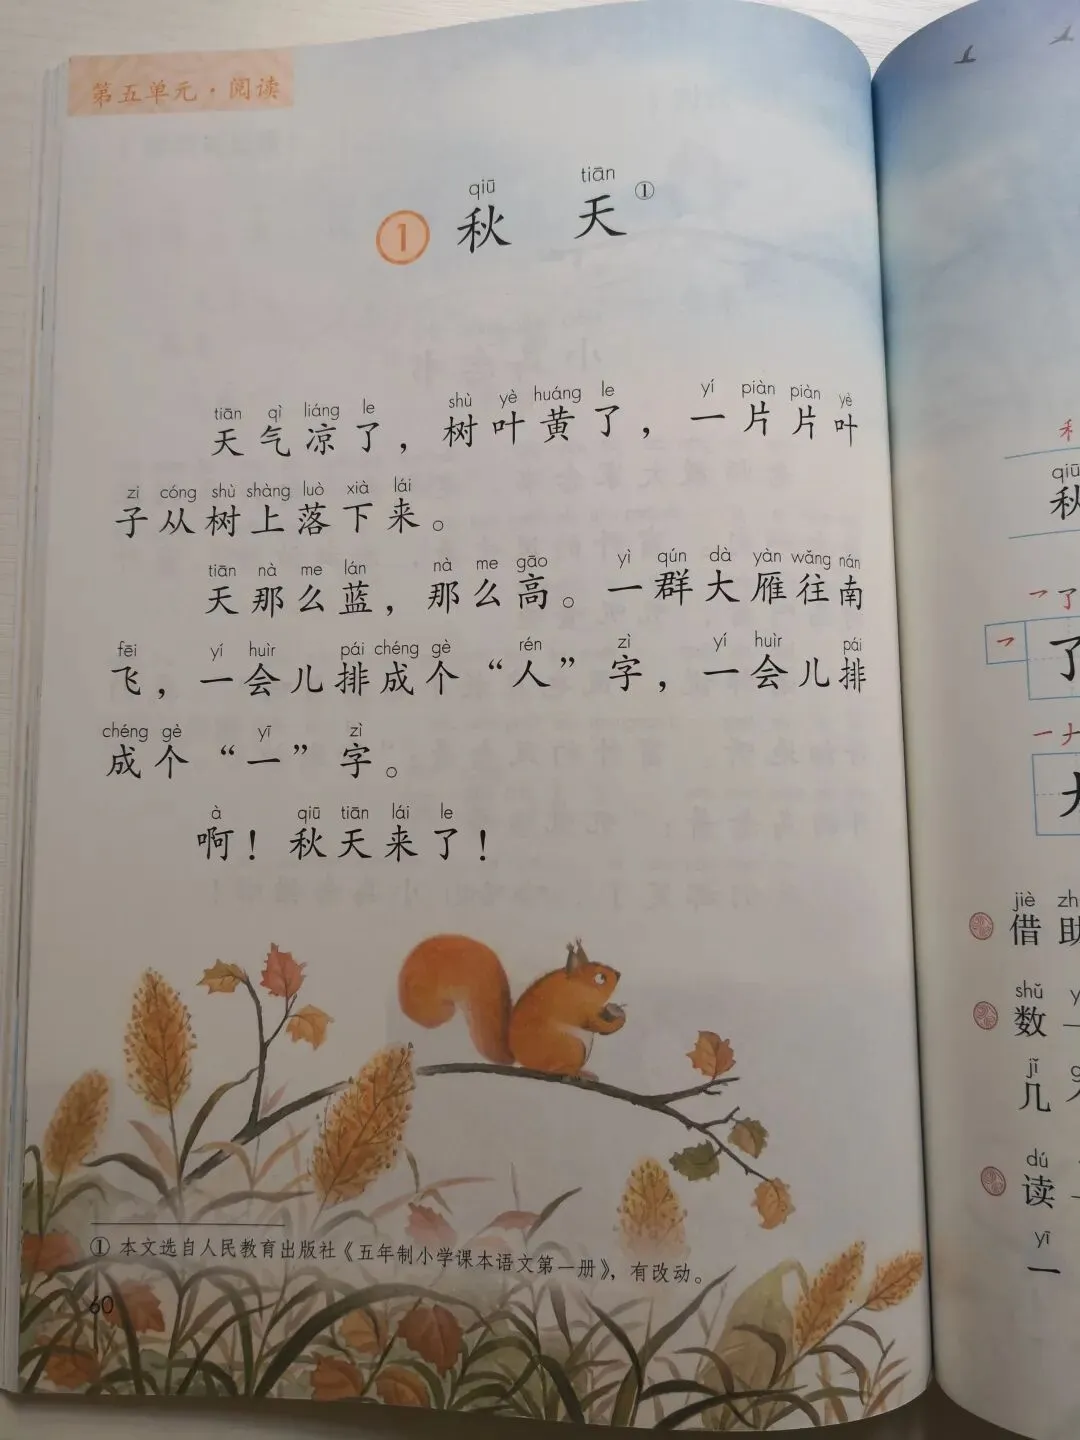 第五单元·阅读
qiū tiān
1 秋 天 ①
tiān qì liáng le shù yè huáng le yí piàn piàn yè
天气凉了，树叶黄了，一片片叶
zi cóng shù shàng luò xià lái
子从树上落下来。
tiān nà me lán nà me gāo yì qún dà yàn wǎng nán
天那么蓝，那么高。一群大雁往南
fēi yí huìr pái chéng gè rén zì yí huìr pái
飞，一会儿排成个“人”字，一会儿排
chéng gè yī zì
成个“一”字。
à qiū tiān lái le
啊！秋天来了！
① 本文选自人民教育出版社《五年制小学课本语文第一册》，有改动。
60
qiū
秋
了
了
jiè
借 助
shǔ
数 一
jǐ
几
dú
读
yī
一